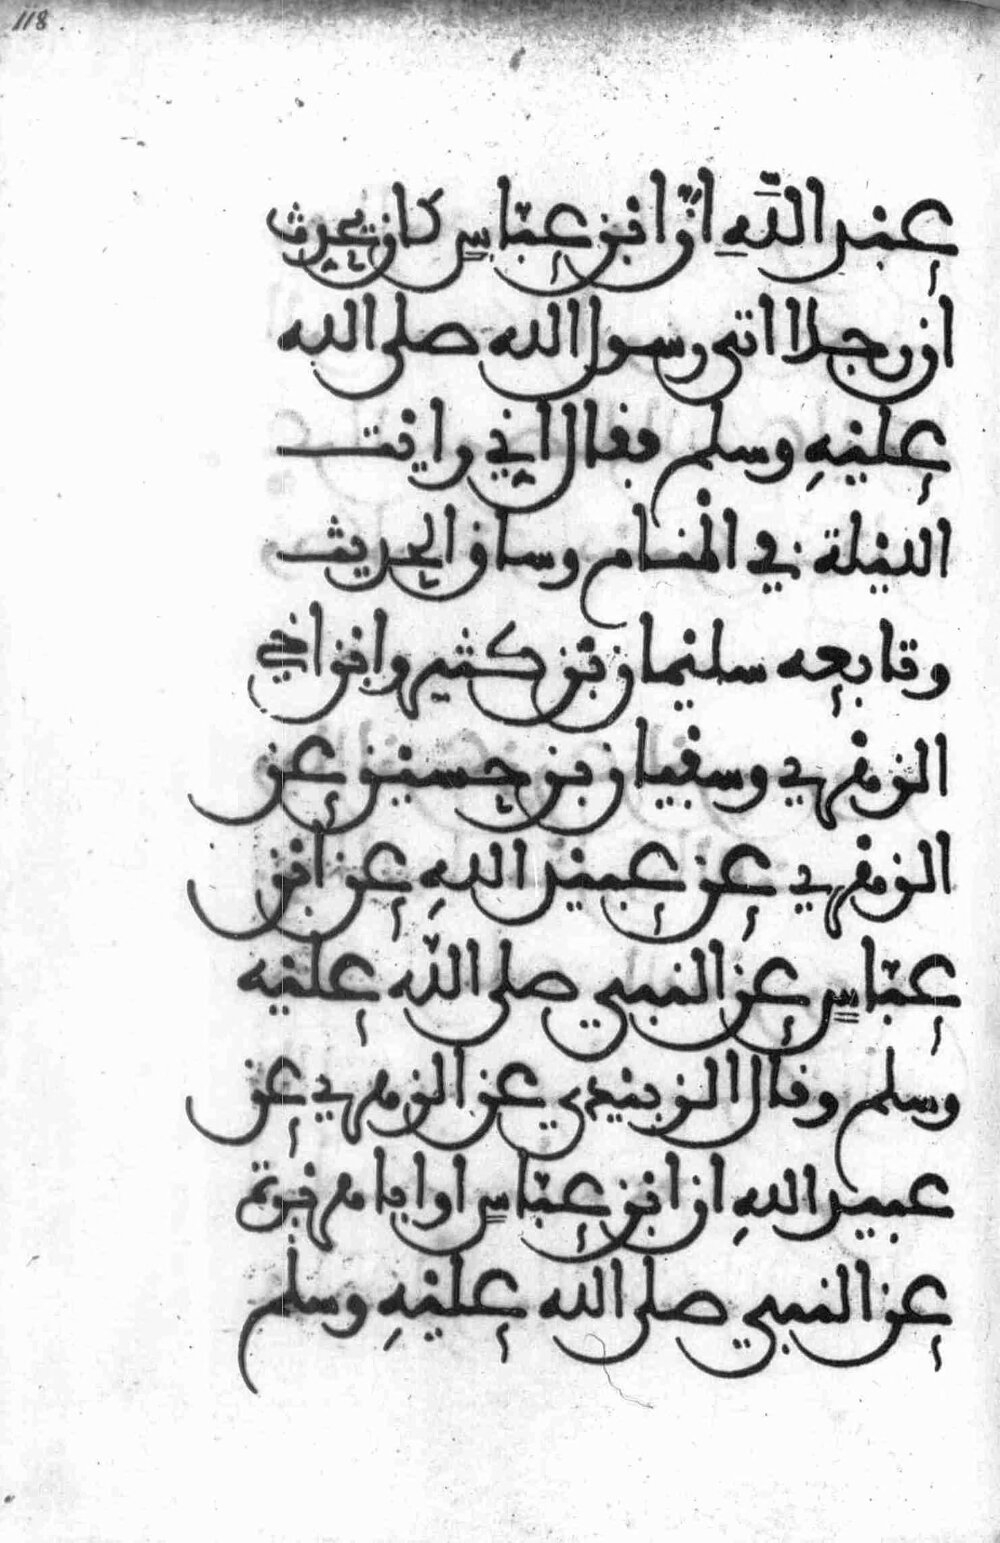 118
عبد الله انّ ابن عبّاس كان يحدث
ان رجلا اتى رسول الله صلى الله
عليه وسلم فقال اني رايت
الليلة في المنام وساق الحديث
وتابعه سليمان بن كثير وابن اخي
الزهري وسفيان بن حسين عن
الزهري عن عبيد الله عن ابن
عبّاس عن النبي صلى الله عليه
وسلم وقال الزبيدي عن الزهري عن
عبيد الله ان ابن عبّاس او ابا هريرة
عن النبي صلى الله عليه وسلم